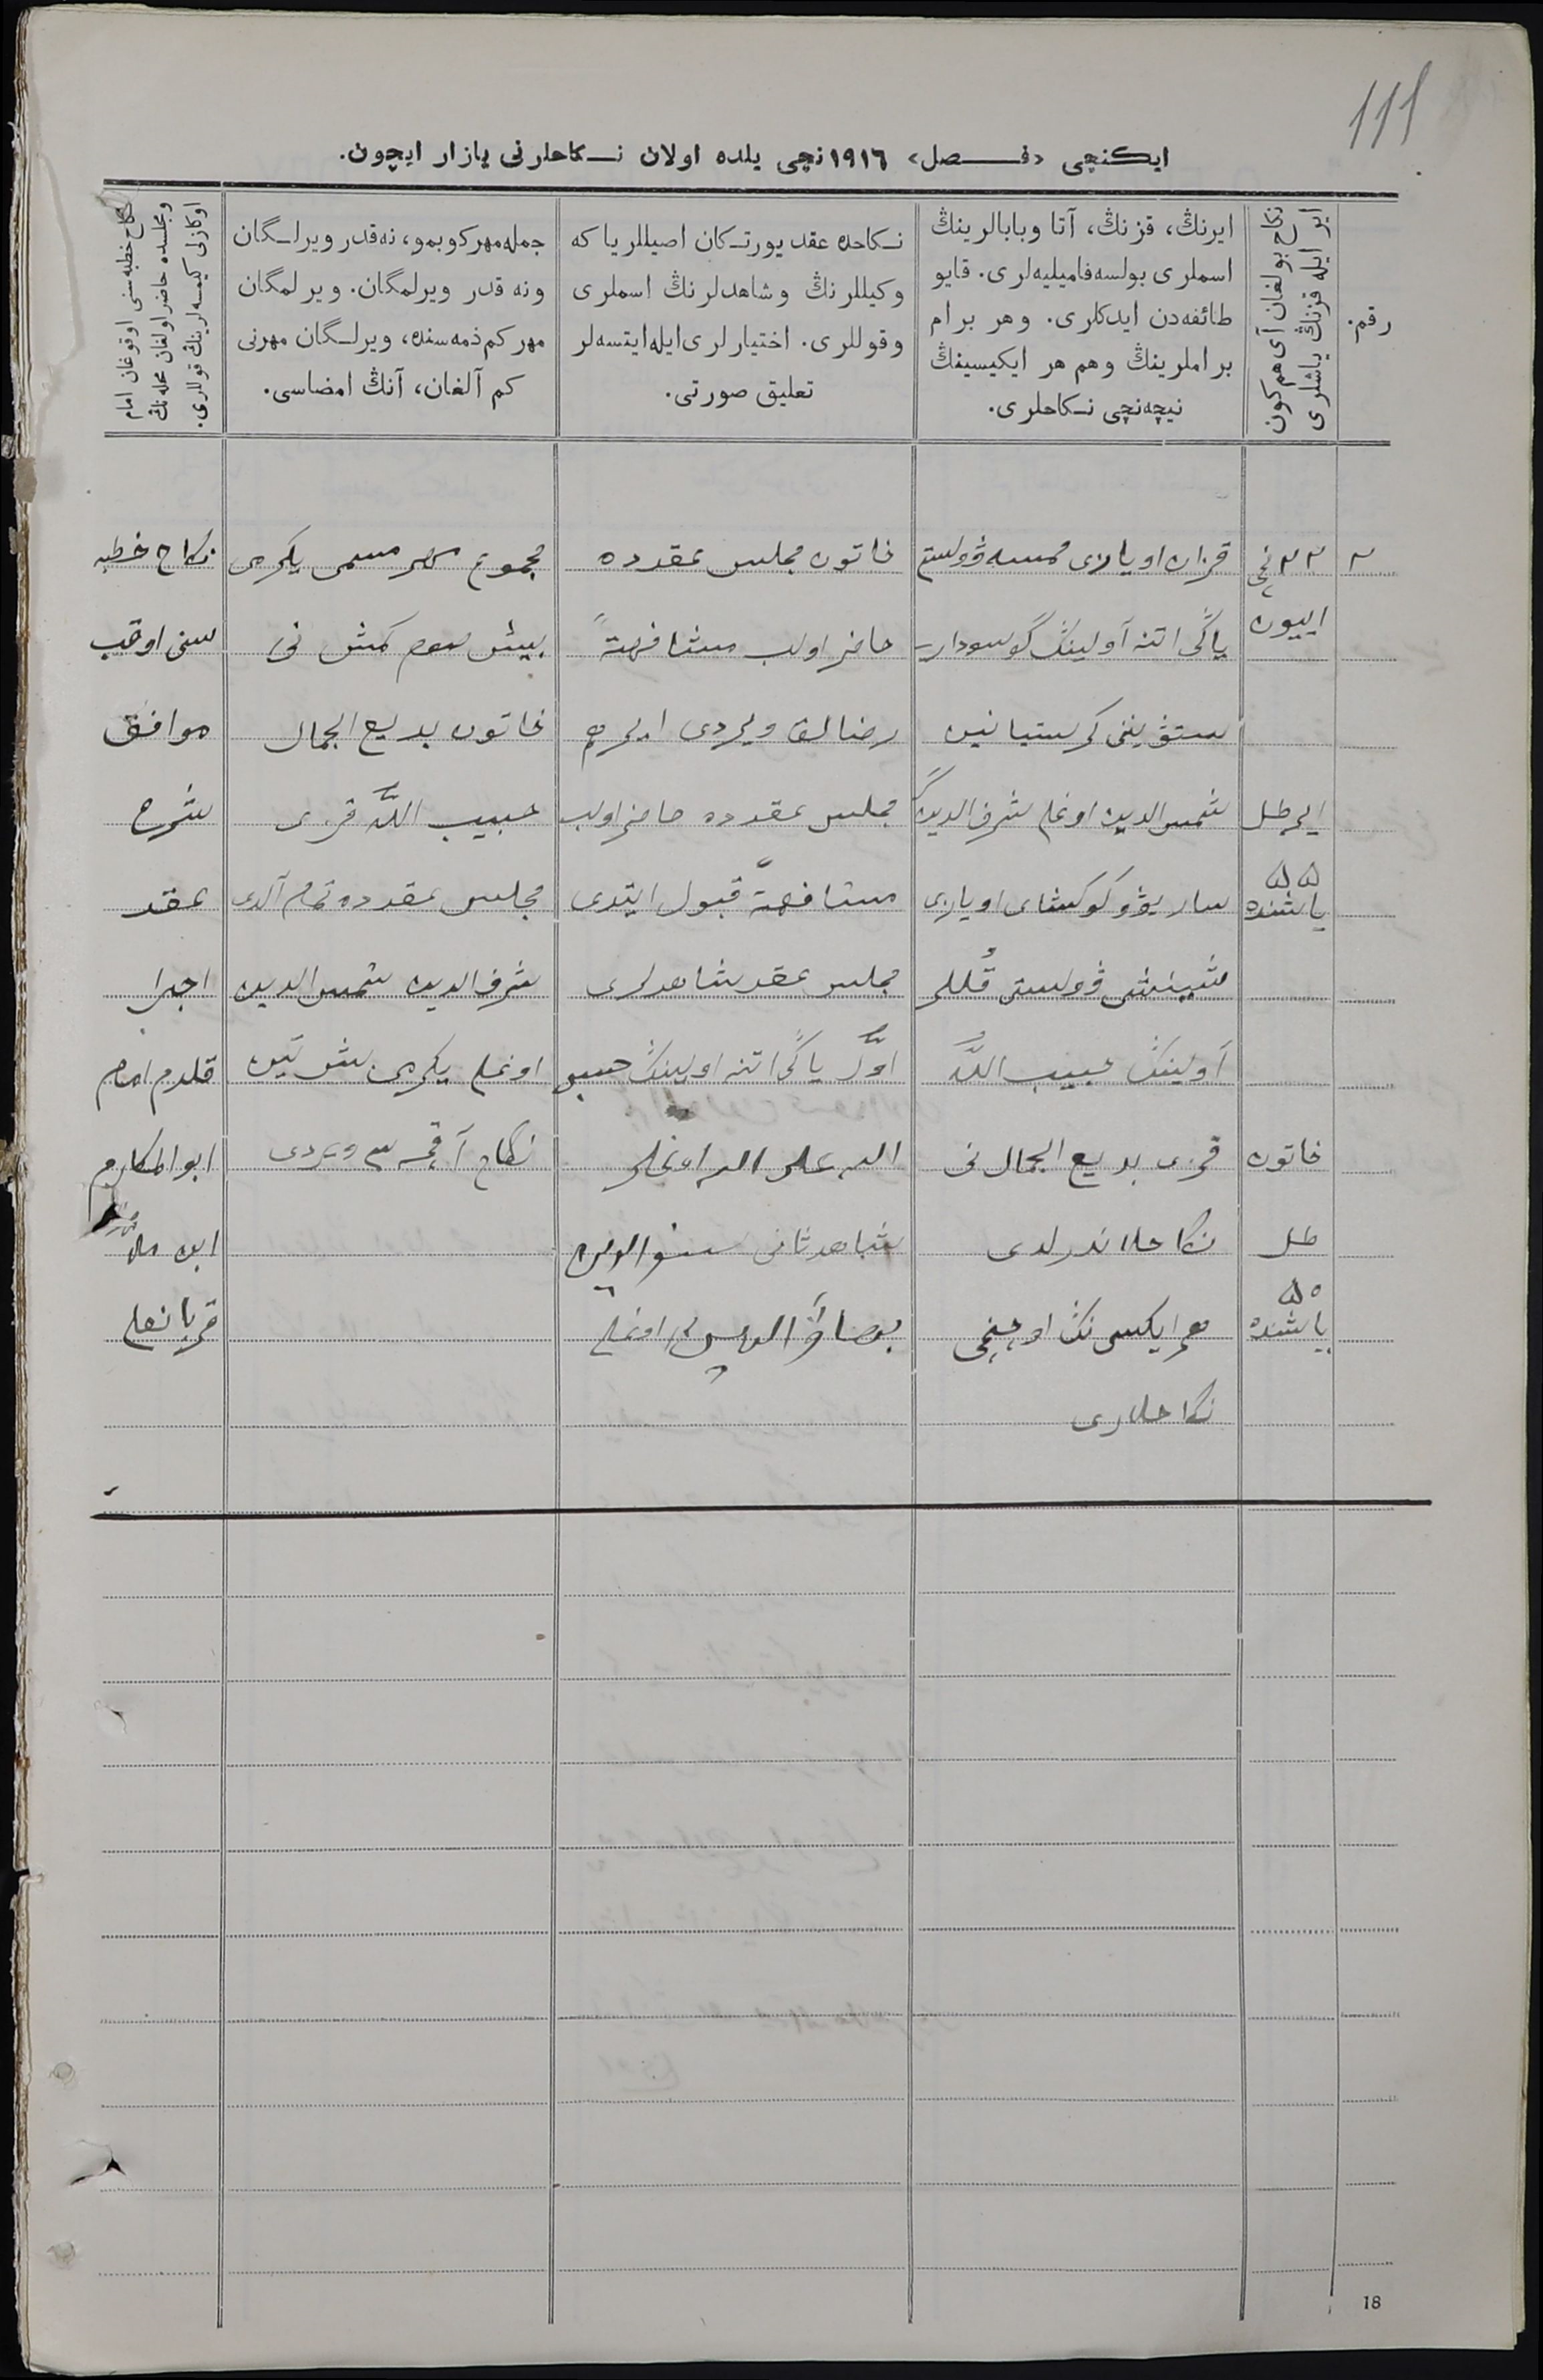 111
ایکنچی «فـصل» ١٩١٦نچی یلده اولان نـکاحلرنی یازار ایچون.
رقم.
نکاح بولغان آی هم کون
ایر ایله قزنڭ یاشلری
ایرنڭ، قزنڭ، آتا وبابالرینڭ
اسملری بولسه فامیلیه‌لری. قایو
طائفه‌دن ایدکلری. وهر برام
براملرینڭ وهم هر ایکیسینڭ
نیچه‌نچی نـکاحلری.
نـکاحده عقد یورتـکان اصیللر یا که
وکیللرنڭ وشاهدلرنڭ اسملری
وقوللری. اختیارلری ایله ایتسه‌لر
تعلیق صورتی.
جمله مهر کوبمو، نه قدر ویرلـگان
ونه قدر ویرلمگان. ویرلمگان
مهر کم ذمه‌سنده، ویرلـگان مهرنی
کم آلغان، آنڭ امضاسی.
نکاح خطبه‌سنی اوقوغان امام
ومجلسده حاضر اولغان محله‌نڭ
اوکازلی کیمسه‌لرینڭ قوللری.
٢
٢٢ نچی
اییون
ایر طل
٥٥
یاشنده
خاتون
طل
٥٠
یاشنده
قزان اویازی ممسه ڤولستی
یاڭی اتنه آولینڭ گوسودار
ستڤیننی کرستیانین
شمس الدین اوغلی شرف الدینگا
ساریڤو کوکشای اویازی
شینشی ڤولستی قللر
آولینڭ حبیب اللّٰه
قزی بدیع الجمال نی
نکاحلاندرلدی
هر ایکسی نڭ اوچنچی
نکاحلاری
خاتون مجلس عقدده
حاضر اولب مشافهةً
رضالق ویردی ایرهم
مجلس عقدده حاضر اولب
مشافهةً قبول ایتدی
مجلس عقد شاهدلری
اوّل یاڭی اتنه اولینڭ
شاهد ثانی
اوغلی
مجموع مهر مسمی یکرمی
بیش صوم کمش نی
خاتون بدیع الجمال
حبیب اللّٰه قزی
مجلس عقدده تمام آلدی
شرف الدین شمس الدین
اوغلی یکرمی بش تین
نکاح آقچه سی ویردی
نکاح خطبه
سنی اوقب
موافق
شرع
عقد
اجرا
قلدم امام
ابو المکارم
ابن ملا
قربانعلی
18